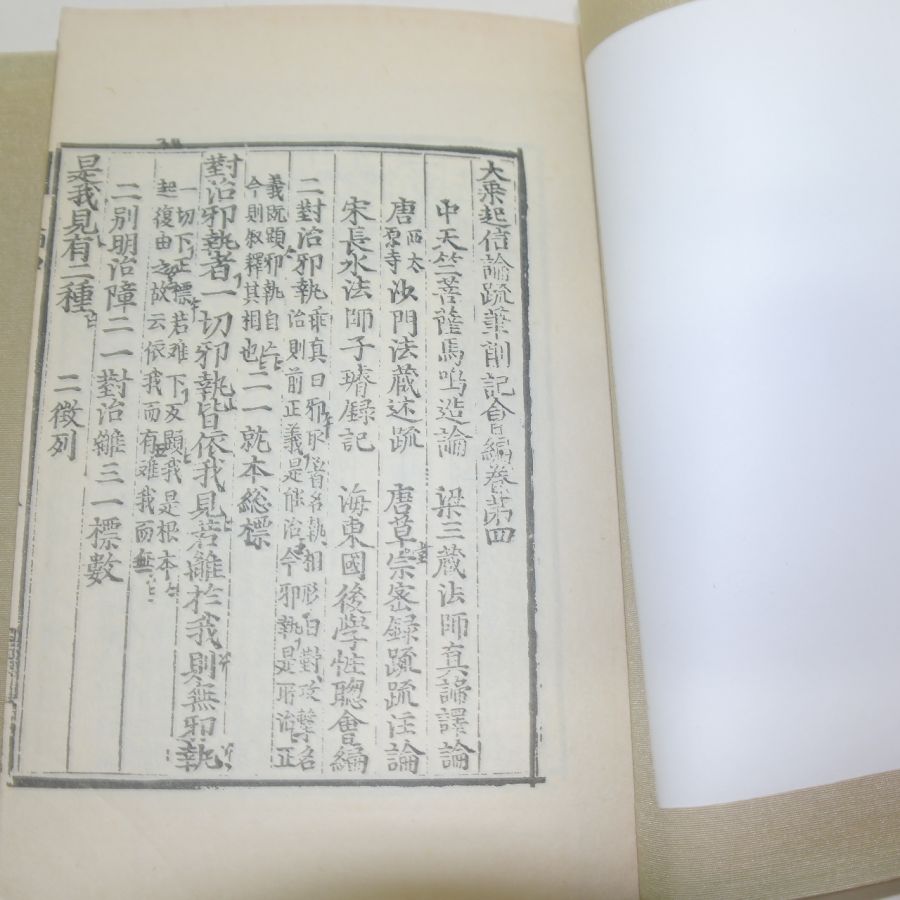 大乘起信論疏筆削記會編卷第四
中天竺菩薩馬鳴造論 梁三藏法師真諦譯論
唐西太原寺沙門法藏述疏 唐草堂宗密録疏疏注論
宋長水法師子璿錄記 海東國後學性聰會編
二對治邪執乖真曰邪取着名執相形曰對攻擊名
治則前正義是能治今邪執是所治正
義既顯邪執自亡
今則叙釋其相也二一就本総標
對治邪執者一切邪執皆依我見若離於我則無邪執
一切下正標若難下反顯我是根本
起復由之故云依我而有难我而無
二别明治障二一對治離三一標數
是我見有二種 二徵列